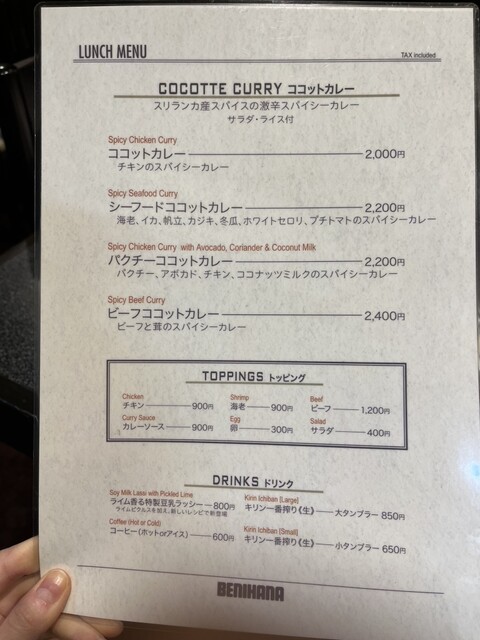 LUNCH MENU
TAX included
COCOTTE CURRY ココットカレー
スリランカ産スパイスの激辛スパイシーカレー
サラダ・ライス付
Spicy Chicken Curry
ココットカレー 2,000円
チキンのスパイシーカレー
Spicy Seafood Curry
シーフードココットカレー 2,200円
海老、イカ、帆立、カジキ、冬瓜、ホワイトセロリ、プチトマトのスパイシーカレー
Spicy Chicken Curry with Avocado, Coriander & Coconut Milk
パクチーココットカレー 2,200円
パクチー、アボカド、チキン、ココナッツミルクのスパイシーカレー
Spicy Beef Curry
ビーフココットカレー 2,400円
ビーフと茸のスパイシーカレー
TOPPINGS トッピング
Chicken Shrimp Beef
チキン 900円 海老 900円 ビーフ 1,200円
Curry Sauce Egg Salad
カレーソース 900円 卵 300円 サラダ 400円
DRINKS ドリンク
Soy Milk Lassi with Pickled Lime
ライム香る特製豆乳ラッシー 800円
ライムピクルスを加え、新しいレシピで新登場
Coffee (Hot or Cold)
コーヒー(ホットorアイス) 600円
Kirin Ichiban [Large]
キリン一番搾り《生》 大タンブラー 850円
Kirin Ichiban [Small]
キリン一番搾り《生》 小タンブラー 650円
BENIHANA